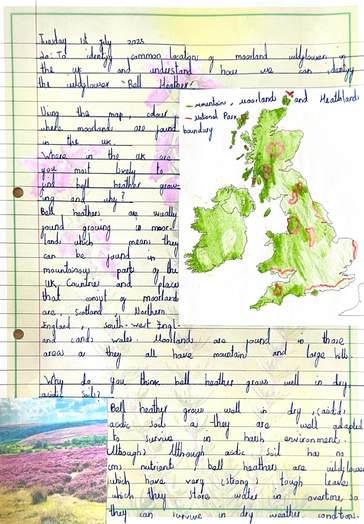 Tuesday 1st July 2025
Lo: To identify common location of moorland wildflower in
the uk and understand how we can identify
the wildflower 'Bell Heather'
Using the map, colour
where moorlands are found
in the UK.
Where in the UK are
you most likely to
find bell heather grow-
ing and why?
Bell heathers are usually
found growing in moor-
lands which means they
can be found in
mountainous parts of the
UK. Countries and places
that consist of moorlands
are Scotland, Northern
England, South-west Engl-
and and wales. Moorlands are found in these
areas as they all have mountain and large hills
mountain, Moorlands and Heathlands
national Park
boundary
Why do you think bell heather grows well in dry
acidic soils?
Bell heather grows well in dry, (acid),
acidic soils as they are well adapted
to survive in harsh environment.
Although, Although acidic soil has no
nutrient bell heathers are wildflower
which have very (strong) tough leaves
which they store water in overtime so
they can survive in dry weather condition.